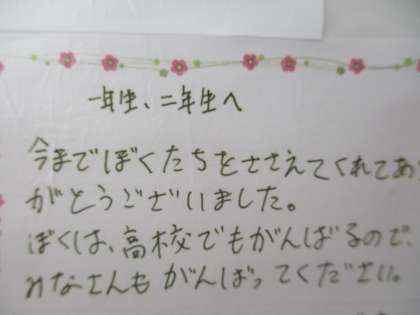 一年生、二年生へ
今までぼくたちをささえてくれてあ
がとうございました。
ぼくは、高校でもがんばるので、
みなさんもがんばってください。